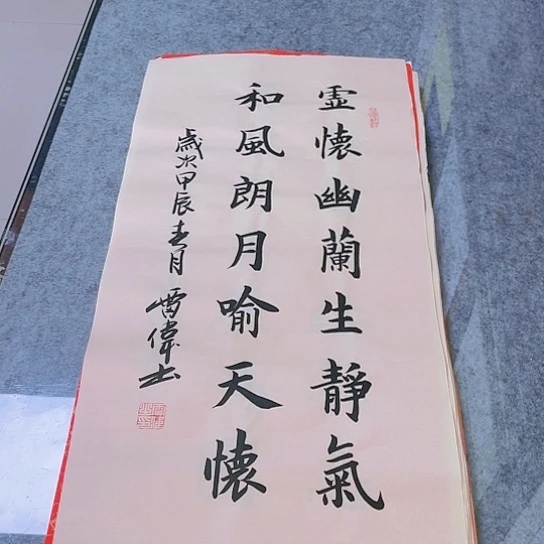 虚懷幽蘭生靜氣
和風朗月喻天懷
歲次甲辰春月 雷偉书